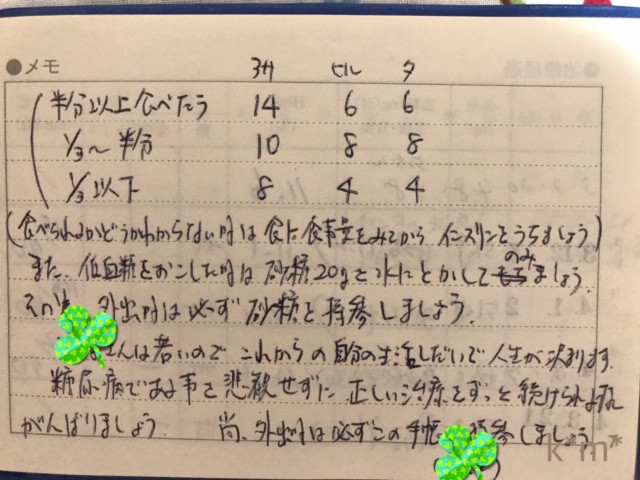 ●メモ
ヨサ ヒル タ
半分以上食べたら 14 6 6
1/3〜半分 10 8 8
1/3以下 8 4 4
(食べられるかどうかわからない時は食た食事量をみてから インスリンをうちましょう)
また、低血糖をおこした時は 砂糖20gを水にとかしてのみましょう
その 外出時は必ず砂糖を持参しましょう.
さんは若いので これからの自分の生活しだいで人生が決まります.
糖尿病である事を悲観せずに 正しい治療をずっと続けられる様
がんばりましょう. 尚、外出時は必ずこの手帳 持参しましょう.
k*m*